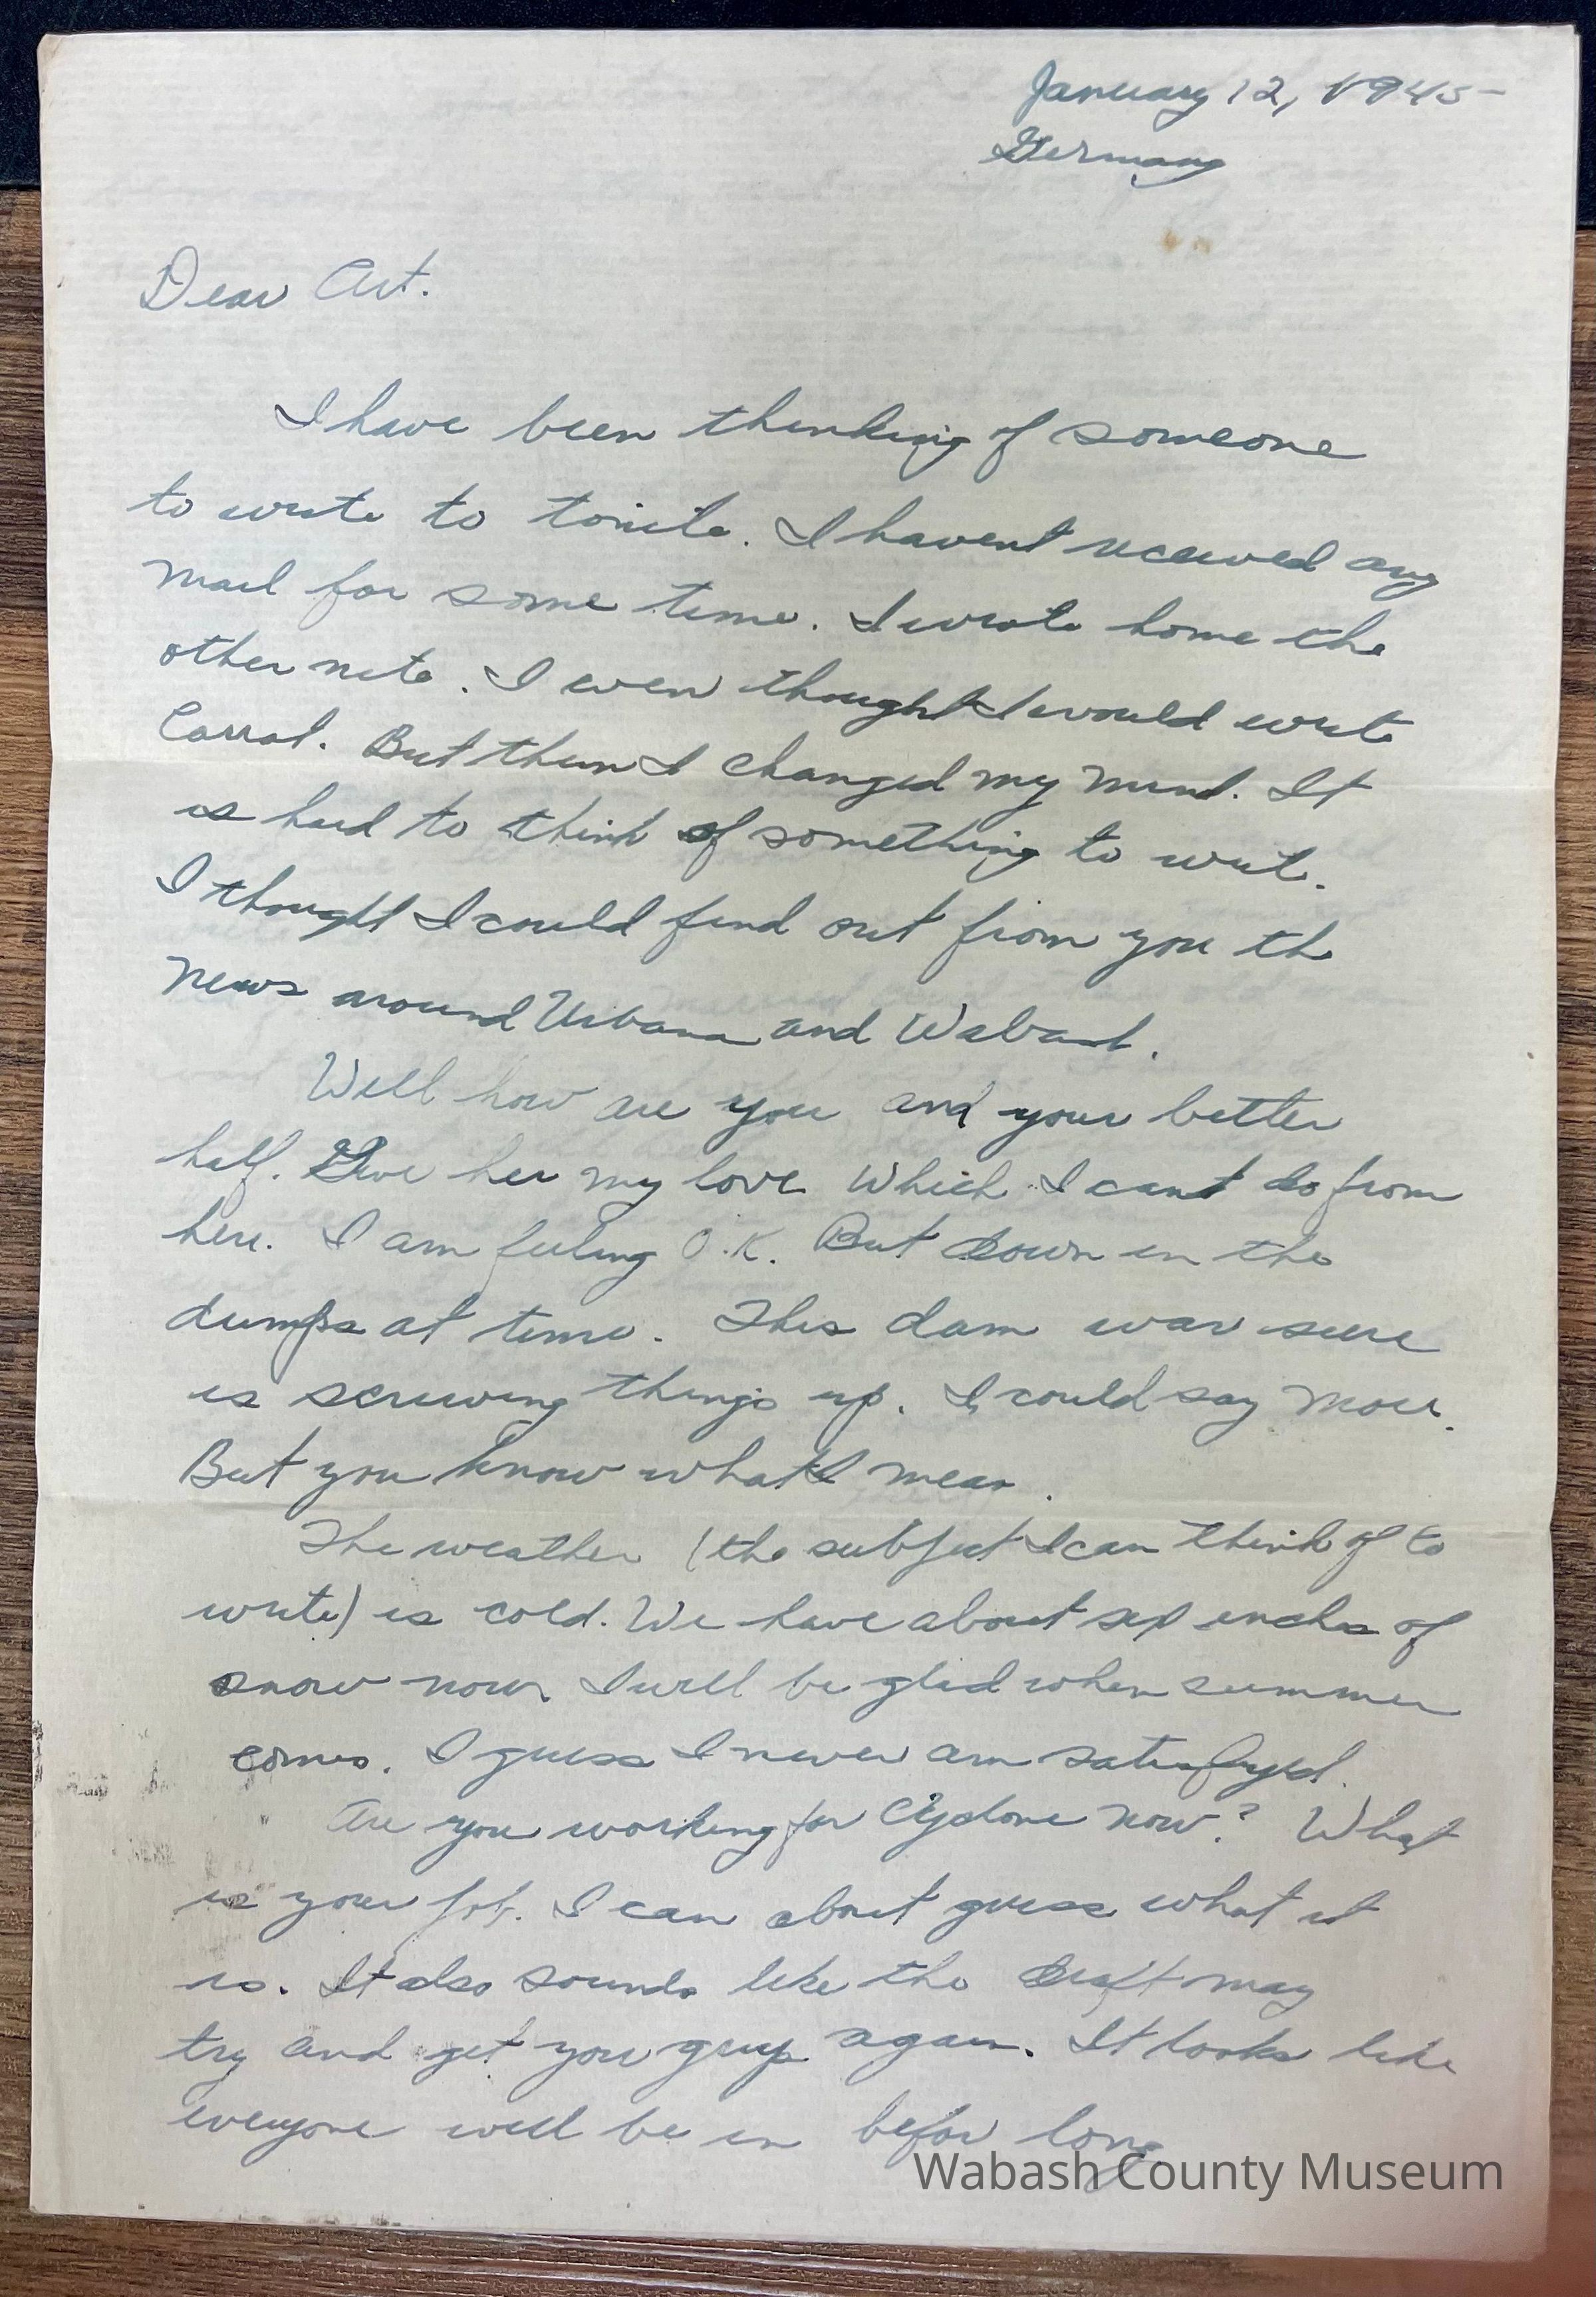 January 12, 1945
Germany
Dear Art.
I have been thinking of someone
to write to tonite. I havent received any
mail for some time. I wrote home the
other nite. I even thought I would write
Carrol. But then I changed my mind. It
is hard to think of something to writ.
I thought I could find out from you th
news around Urbana and Wabash.
Well how are you and your better
half. Give her my love which I cant do from
here. I am feeling O.K. But down in the
dumps at time. This dam war sure
is screwing things up. I could say more.
But you know what I mean.
The weather (the subject I can think of to
write) is cold. We have about six inches of
snow now. I will be glad when summer
comes. I guess I never am satisfyed.
Are you working for Cyclone now? What
is your job. I can about guess what it
is. It also sounds like the draft may
try and get you guys again. It looks like
everyone will be in befor long
Wabash County Museum